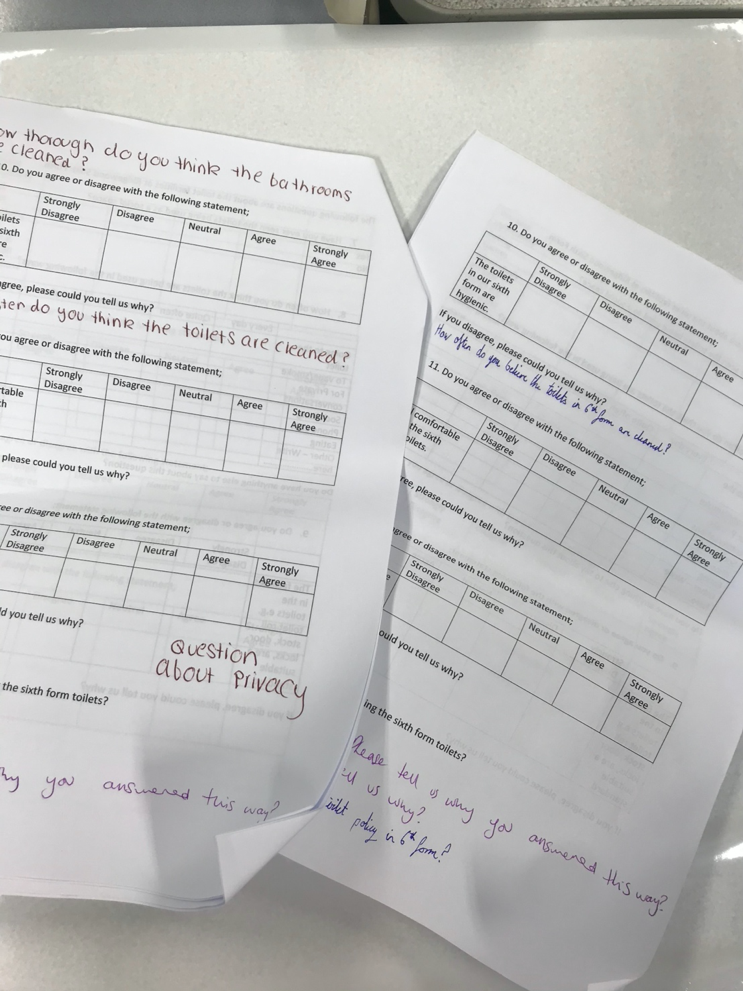 ow thorough do you think the bathrooms
e cleaned?
0. Do you agree or disagree with the following statement;
Strongly Disagree Disagree Neutral Agree Strongly Agree
oilets
sixth
re
c.
agree, please could you tell us why?
ten do you think the toilets are cleaned?
you agree or disagree with the following statement;
Strongly Disagree Disagree Neutral Agree Strongly Agree
rtable
h
please could you tell us why?
ee or disagree with the following statement;
Strongly Disagree Disagree Neutral Agree Strongly Agree
ld you tell us why?
Question
about privacy
the sixth form toilets?
hy you answered this way?
10. Do you agree or disagree with the following statement;
Strongly Disagree Disagree Neutral Agree
The toilets
in our sixth
form are
hygienic.
If you disagree, please could you tell us why?
How often do you believe the toilets in 6th form are cleaned?
11. Do you agree or disagree with the following statement;
Strongly Disagree Disagree Neutral Agree Strongly Agree
comfortable
the sixth
oilets.
ree, please could you tell us why?
gree or disagree with the following statement;
Strongly Disagree Disagree Neutral Agree Strongly Agree
e
ould you tell us why?
ing the sixth form toilets?
Please tell us why you answered this way?
ell us why?
oilet policy in 6th form?